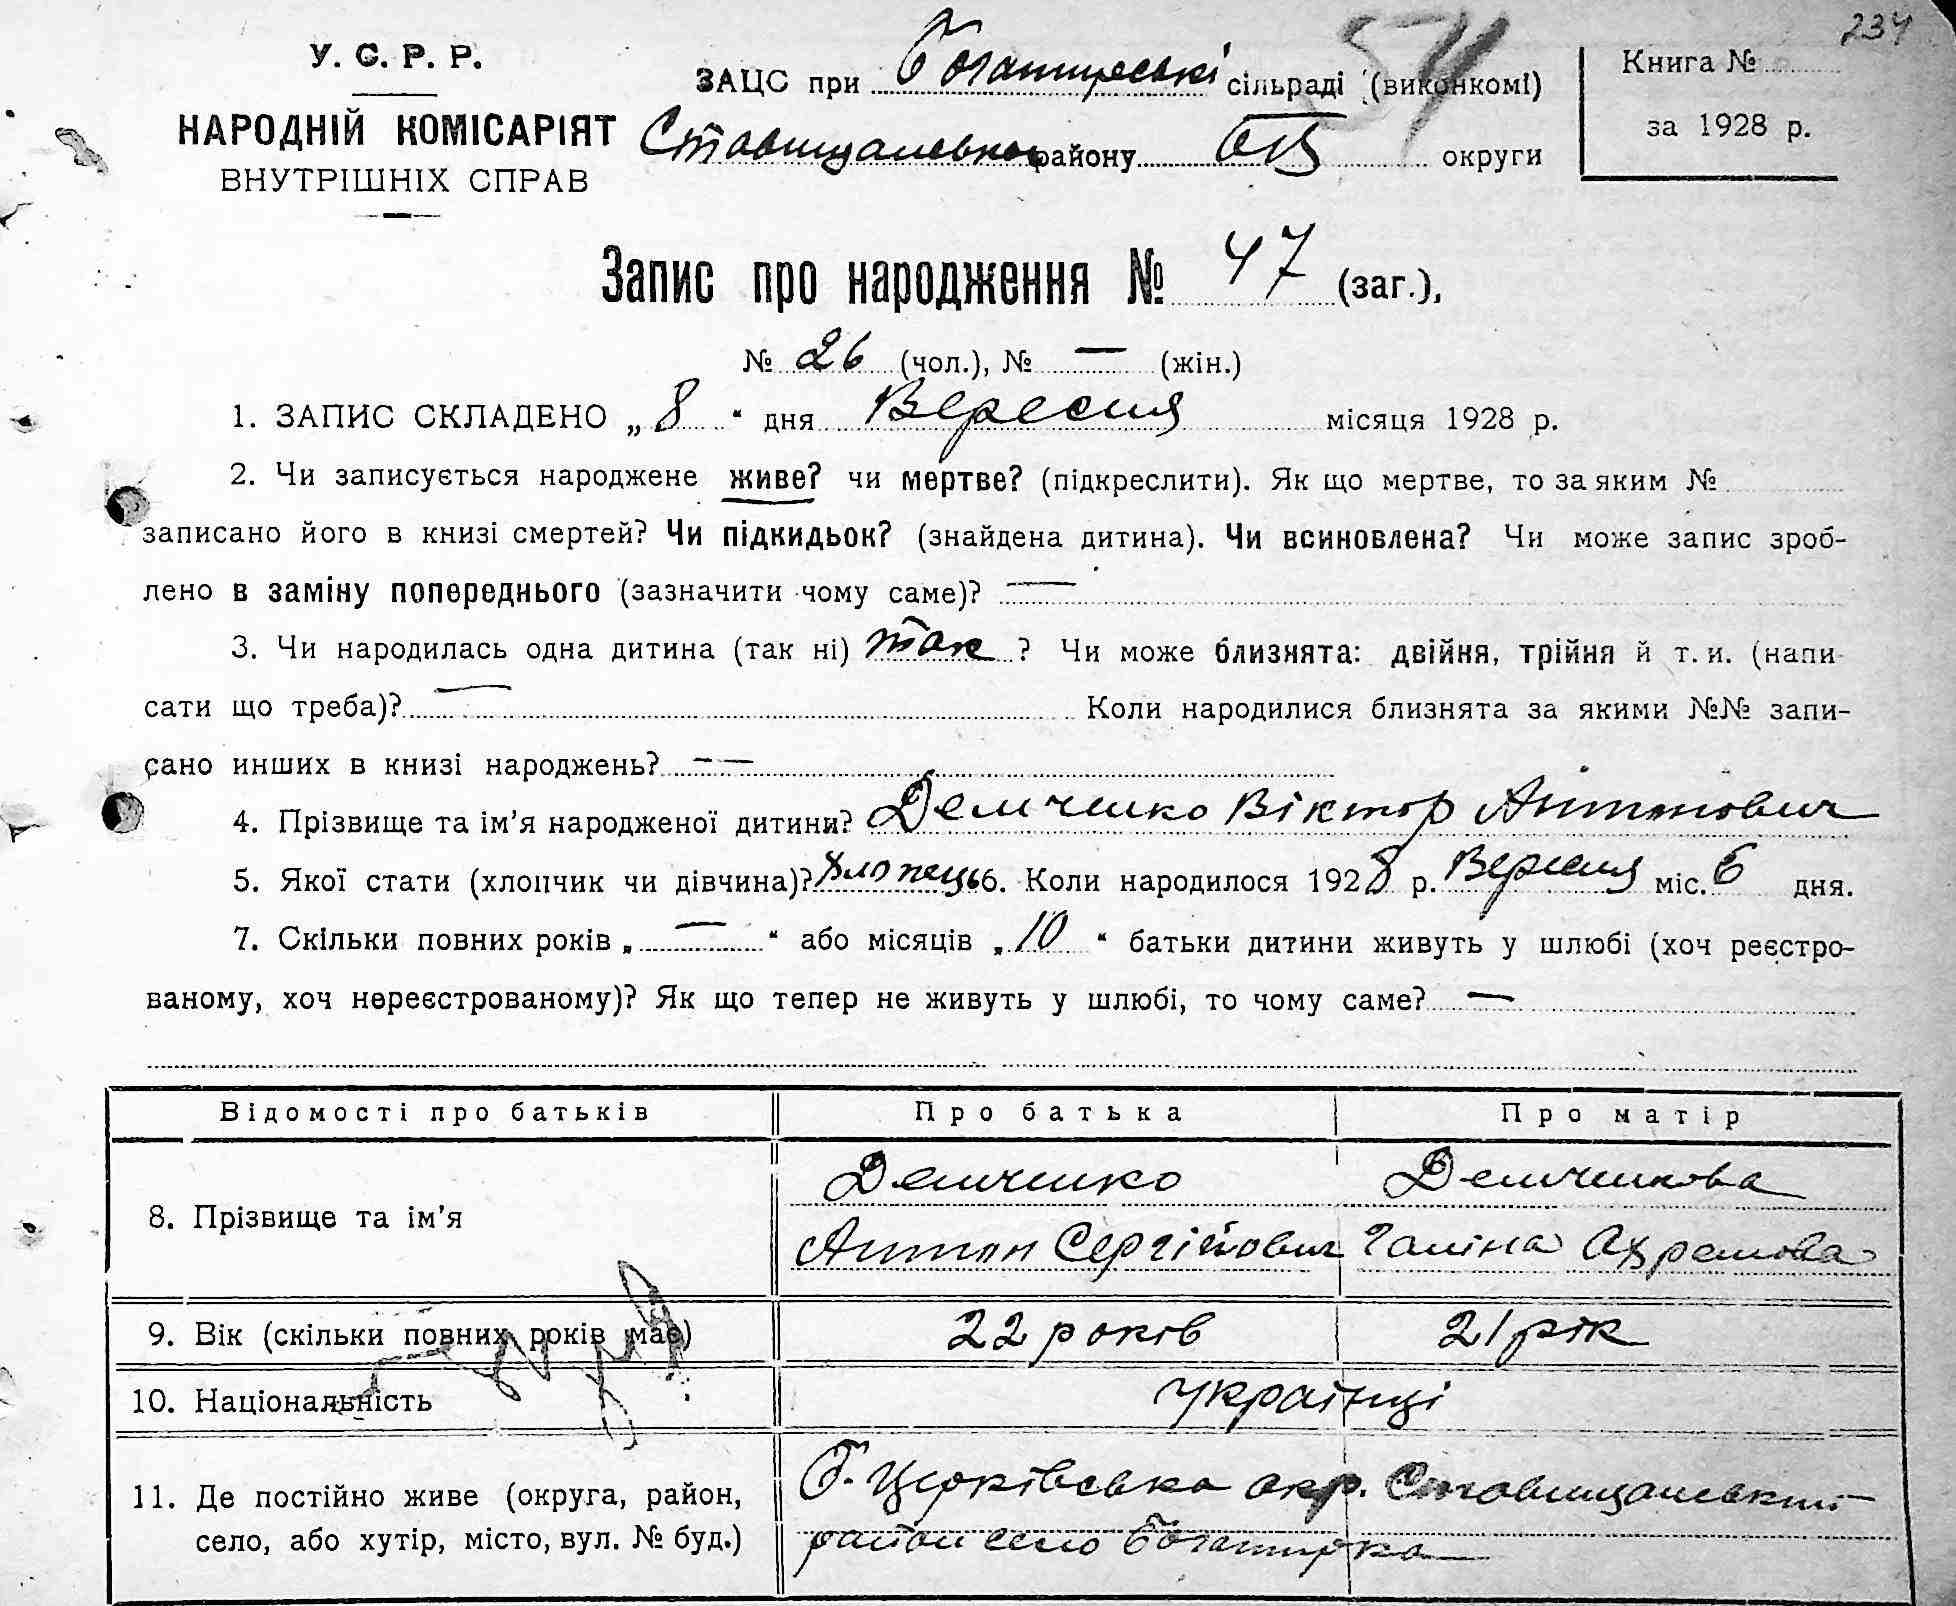 234
У. С. Р. Р.
НАРОДНІЙ КОМІСАРІЯТ
ВНУТРІШНІХ СПРАВ
ЗАЦС при Богатирські сільраді (виконкомі)
Ставищанського району БЦ округи
54
Книга №
за 1928 р.
Запис про народження № 47 (заг.),
№ 26 (чол.), № — (жін.)
1. ЗАПИС СКЛАДЕНО „8“ дня Вересня місяця 1928 р.
2. Чи записується народжене живе? чи мертве? (підкреслити). Як що мертве, то за яким №
записано його в книзі смертей? Чи підкидьок? (знайдена дитина). Чи всиновлена? Чи може запис зроб-
лено в заміну попереднього (зазначити чому саме)? —
3. Чи народилась одна дитина (так ні) так ? Чи може близнята: двійня, трійня й т. и. (напи-
сати що треба)? — Коли народилися близнята за якими №№ запи-
сано инших в книзі народжень? — —
4. Прізвище та ім'я народженої дитини? Демченко Віктор Антонович
5. Якої стати (хлопчик чи дівчина)? Хлопець 6. Коли народилося 1928 р. Вересня міс. 6 дня.
7. Скільки повних років „ — “ або місяців „10“ батьки дитини живуть у шлюбі (хоч реєстро-
ваному, хоч нереєстрованому)? Як що тепер не живуть у шлюбі, то чому саме? —
Відомості про батьків Про батька Про матір
8. Прізвище та ім'я
Демченко
Антон Сергійович
Демченкова
Галіна Охремова
9. Вік (скільки повних років має) 22 років 21 рік
10. Національність українці
11. Де постійно живе (округа, район,
село, або хутір, місто, вул. № буд.)
Б. Церківська окр. Ставищанський
район село Богатирка